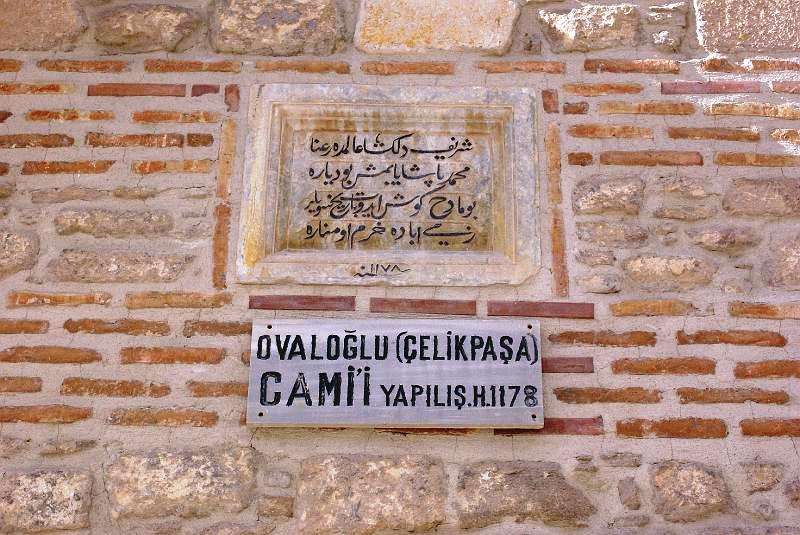 شریف دلکشا عالمده رعنا
محمد پاشا یاپمش بو دیاره
بو مادح کوش ایدوب تاریخنی
زهی آباده خرم او مناره
سنه ١١٧٨
OVALOĞLU (ÇELİKPAŞA)
CAMİ'İ YAPILIŞ.H.1178